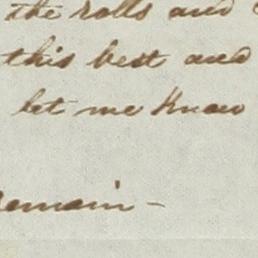 the rolls and
this best and
let me know
remain -